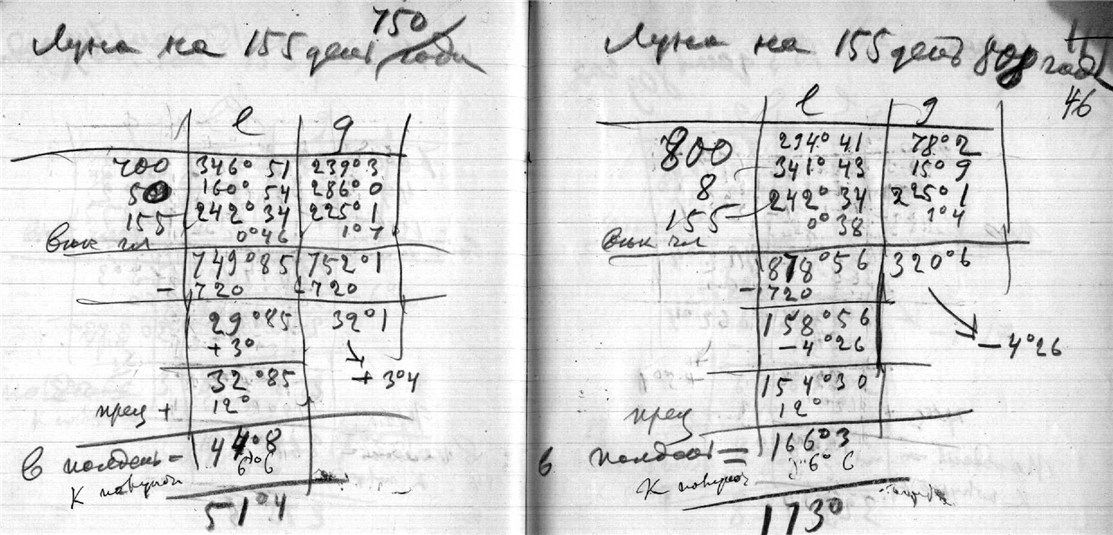 750
Луна на 155 день года
l g
700 346° 51 239° 3
50 160° 54 286° 0
155 242° 34 225° 1
вик гл 0° 46 1° 7
749° 85 752° 1
- 720 720
29° 85 32° 1
+3°
32° 85 + 3°4
прец + 12°
в полдень = 44°8
К 6°6
51°4
Луна на 155 день 808 год
46
l g
800 294° 41 78° 2
8 341° 43 15° 9
155 242° 34 225° 1
вик гл 0° 38 1° 4
878° 56 320° 6
- 720
158° 56
- 4° 26 - 4° 26
154° 30
прец 12°
в полдень = 166° 3
К 6° 6
173°